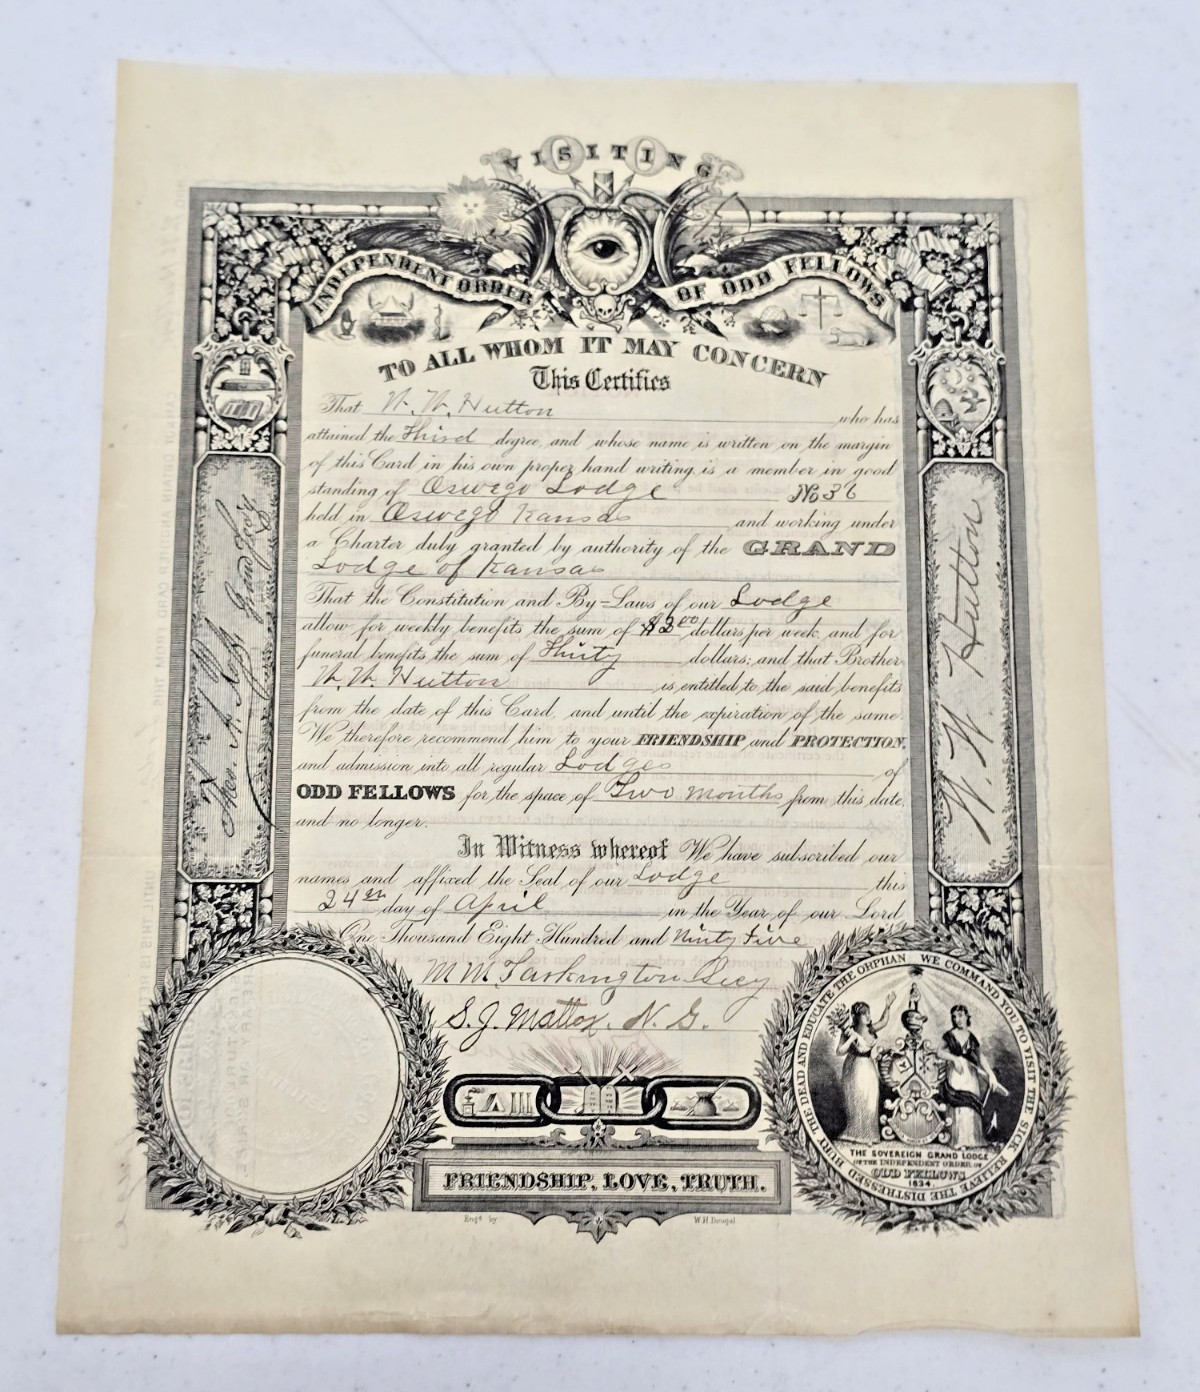 VISITING
INDEPENDENT ORDER OF ODD FELLOWS
TO ALL WHOM IT MAY CONCERN
This Certifies
That W. W. Hutton who has
attained the Third degree, and whose name is written on the margin
of this Card in his own proper hand writing, is a member in good
standing of Oswego Lodge No 36
held in Oswego Kansas and working under
a Charter duly granted by authority of the GRAND
Lodge of Kansas
That the Constitution and By-Laws of our Lodge
allow for weekly benefits the sum of $3 00 dollars per week, and for
funeral benefits the sum of Thirty dollars; and that Brother
W. W. Hutton is entitled to the said benefits
from the date of this Card, and until the expiration of the same.
We therefore recommend him to your FRIENDSHIP and PROTECTION,
and admission into all regular Lodges of
ODD FELLOWS for the space of Two months from this date,
and no longer.
In Witness whereof We have subscribed our
names and affixed the Seal of our Lodge this
24th day of April in the Year of our Lord
One Thousand Eight Hundred and Ninty five
M M Tarkington Secy
S. J. Mattox. N. G.
FRIENDSHIP, LOVE, TRUTH.
Engd. by W.H. Dougal
Theo. A. Grand Secy
W. W. Hutton
WE COMMAND YOU TO VISIT THE SICK RELIEVE THE DISTRESSED BURY THE DEAD AND EDUCATE THE ORPHAN
THE SOVEREIGN GRAND LODGE
OF THE INDEPENDENT ORDER OF
ODD FELLOWS
1834